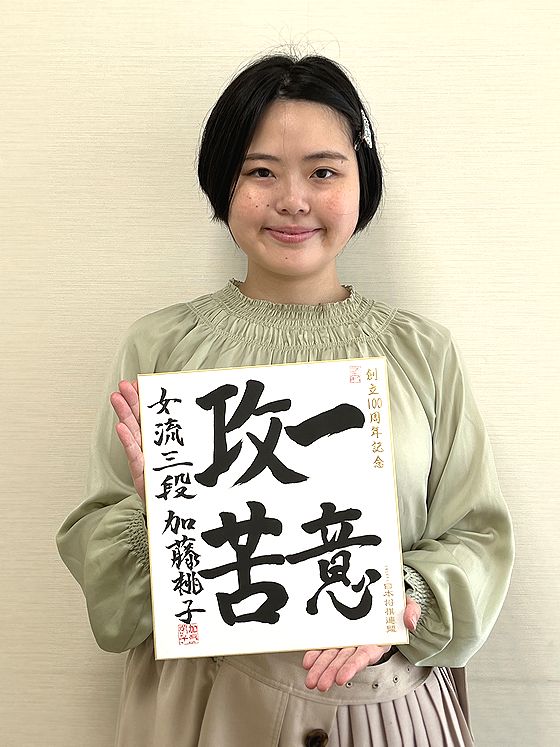 創立100周年記念
一意
攻苦
女流三段 加藤桃子
日本将棋連盟